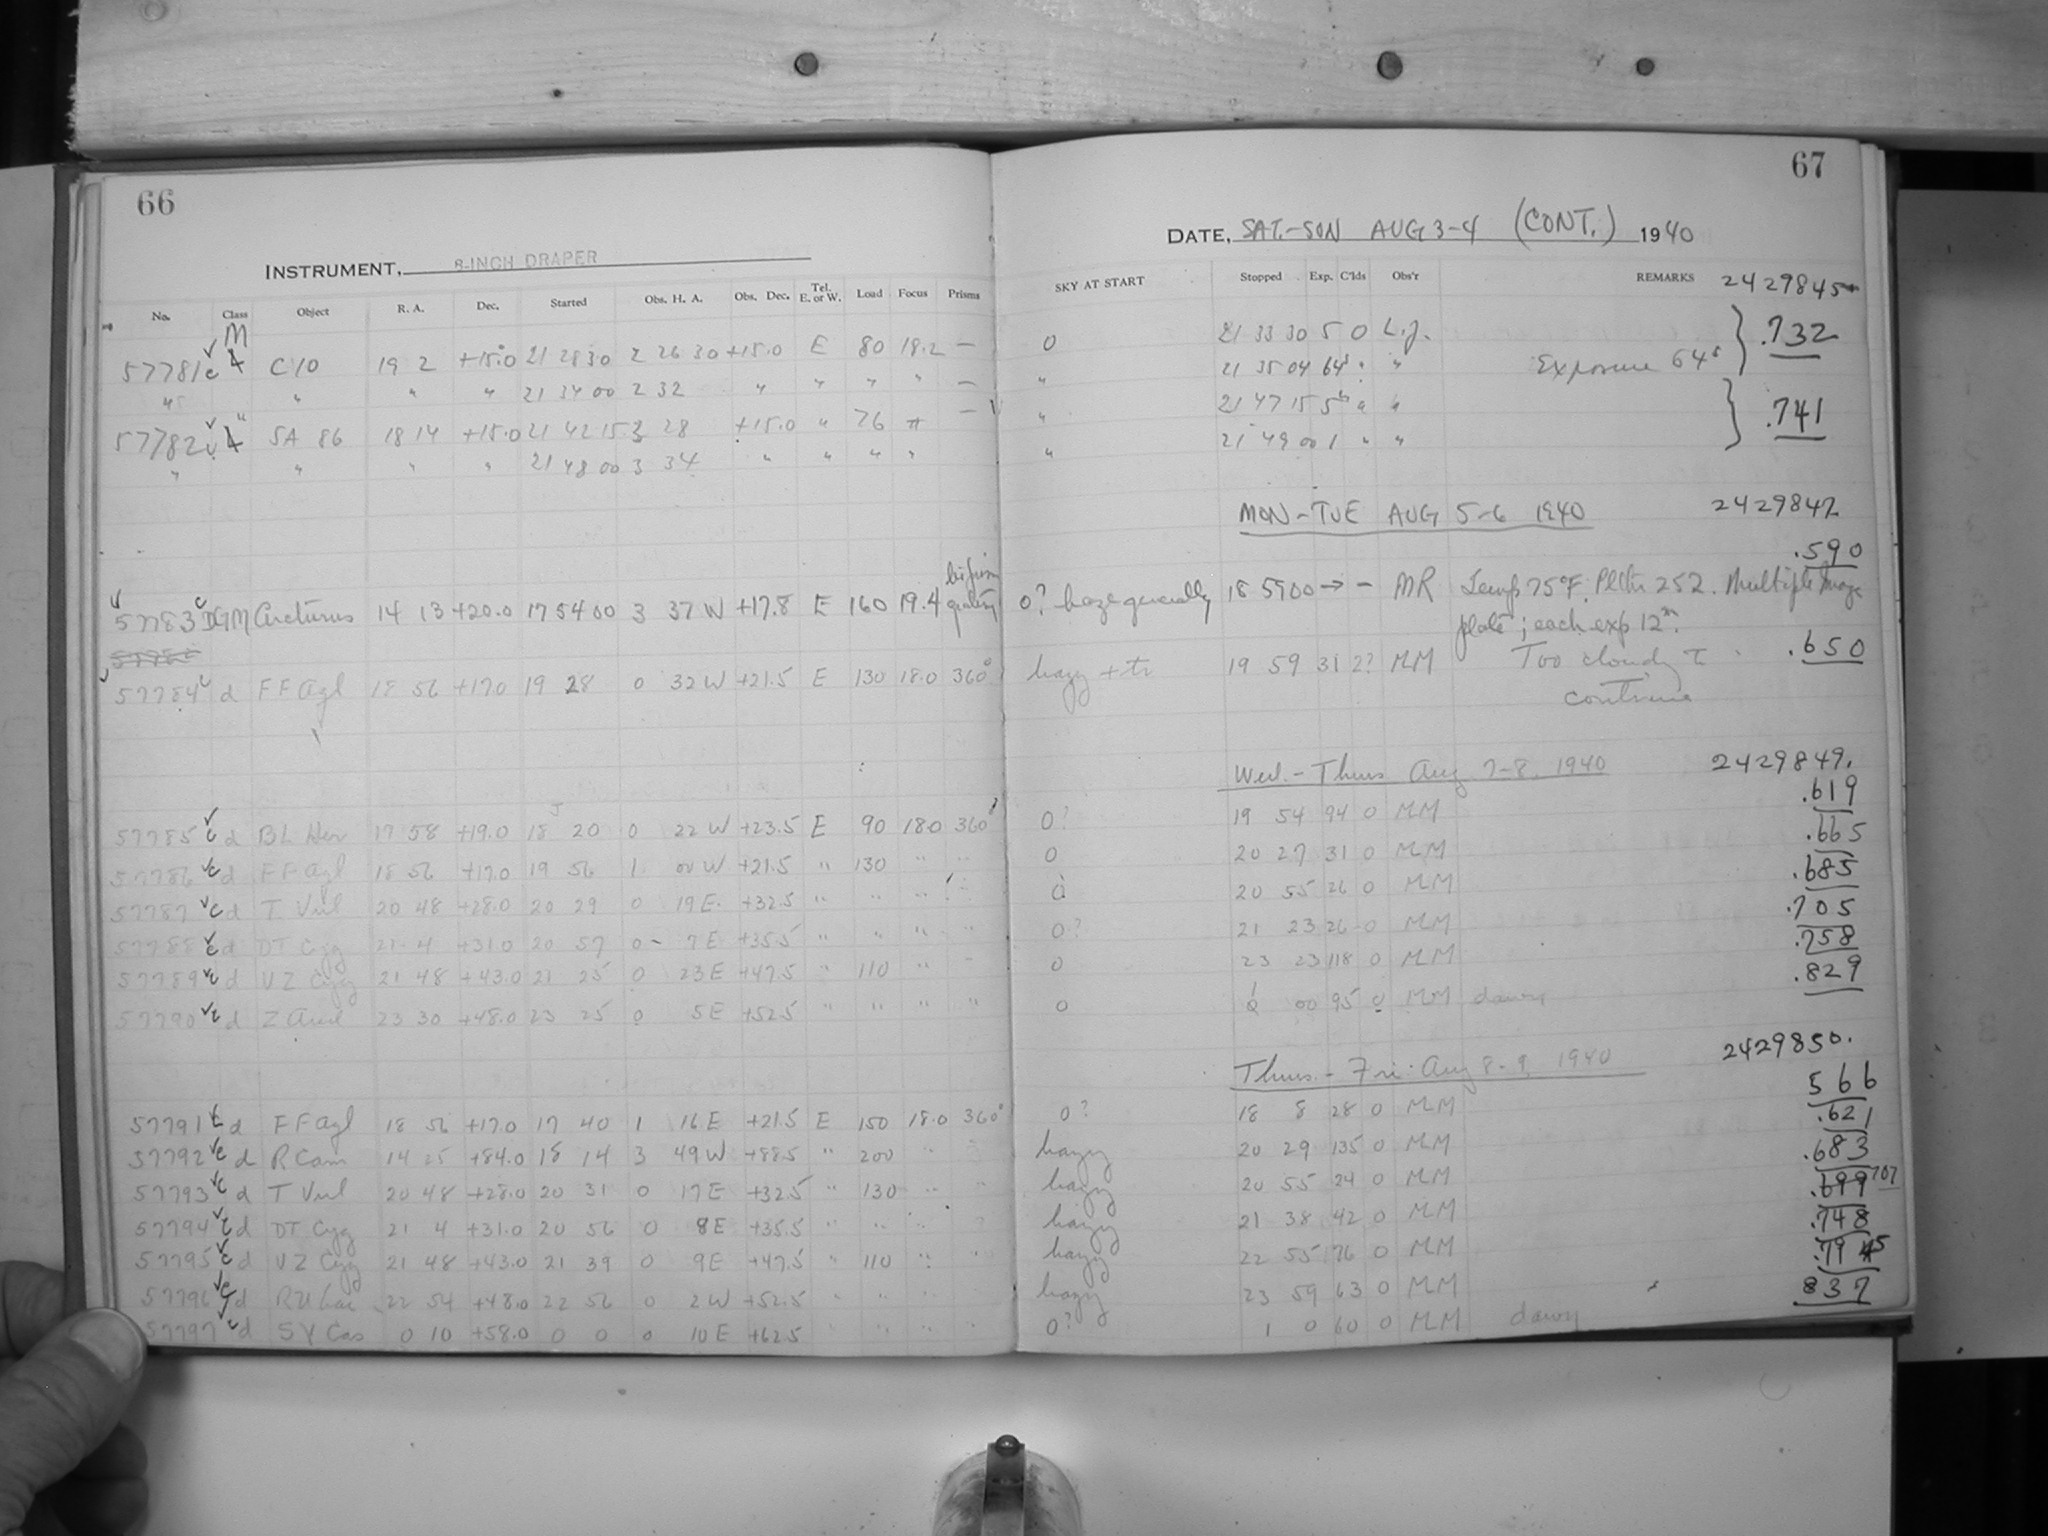 66
INSTRUMENT, 8-INCH DRAPER
No. Class Object R. A. Dec. Started Obs. H. A. Obs. Dec. Tel. E. or W. Load Focus Prisms
M
57781 c C10 19 2 +15.0 21 28 30 2 26 30 +15.0 E 80 18.2 —
" " " " " 21 34 00 2 32 " " " " —
57782 SA 86 18 14 +15.0 21 42 15 3 28 +15.0 " 76 " —
" " " " 21 48 00 3 34 " " " "
57783 c DGM Arcturus 14 13 +20.0 17 54 00 3 37 W +17.8 E 160 19.4
57784 d FF Aql 18 56 +17.0 19 28 0 32 W +21.5 E 130 18.0 360°
57785 c d BL Her 17 58 +19.0 18 20 0 22 W +23.5 E 90 18.0 360°
57786 c d FF Aql 18 56 +17.0 19 56 1 00 W +21.5 " 130 " "
57787 c d T Vul 20 48 +28.0 20 29 0 19 E +32.5 " " " "
57788 c d DT Cyg 21 4 +31.0 20 57 0 7 E +35.5 " " " "
57789 c d VZ Cyg 21 48 +43.0 21 25 0 23 E +47.5 " 110 " "
57790 c d Z And 23 30 +48.0 23 25 0 5 E +52.5 " " " "
57791 c d FF Aql 18 56 +17.0 17 40 1 16 E +21.5 E 150 18.0 360°
57792 c d R Cam 14 25 +84.0 18 14 3 49 W +88.5 " 200 " "
57793 c d T Vul 20 48 +28.0 20 31 0 17 E +32.5 " 130 " "
57794 c d DT Cyg 21 4 +31.0 20 56 0 8 E +35.5 " " " "
57795 c d VZ Cyg 21 48 +43.0 21 39 0 9 E +47.5 " 110 " "
57796 c d RU Lac 22 54 +48.0 22 56 0 2 W +52.5 " " " "
57797 c d SY Cas 0 10 +58.0 0 0 0 10 E +62.5 " " " "
67
DATE, SAT.-SUN AUG 3-4 (CONT.) 1940
SKY AT START Stopped Exp. C'lds Obs'r REMARKS 2429845
0 21 33 30 5 0 L.J. .732
" 21 35 04 64s " " Exposure 64s
" 21 47 15 5 " " .741
" 21 49 00 1 " "
MON-TUE AUG 5-6 1940 2429847
.590
0? haze generally 18 59 00 → - MR Temp 75°F. Pltr 252. Multiple Image
plate; each exp 12m.
hazy + tr 19 59 31 2? MM Too cloudy to .650
continue
Wed.-Thurs Aug 7-8, 1940 2429849.
0? 19 54 94 0 MM .619
0 20 27 31 0 MM .665
0 20 55 26 0 MM .685
0? 21 23 26 0 MM .705
0 23 23 118 0 MM .758
0 1 00 95 0 MM dawn .829
Thurs - Fri. Aug 8-9, 1940 2429850.
0? 18 8 28 0 MM 566
hazy 20 29 135 0 MM .621
hazy 20 55 24 0 MM .683
hazy 21 38 42 0 MM .699 707
hazy 22 55 76 0 MM .748
hazy 23 59 63 0 MM .79 45
0? 1 0 60 0 MM dawn 837